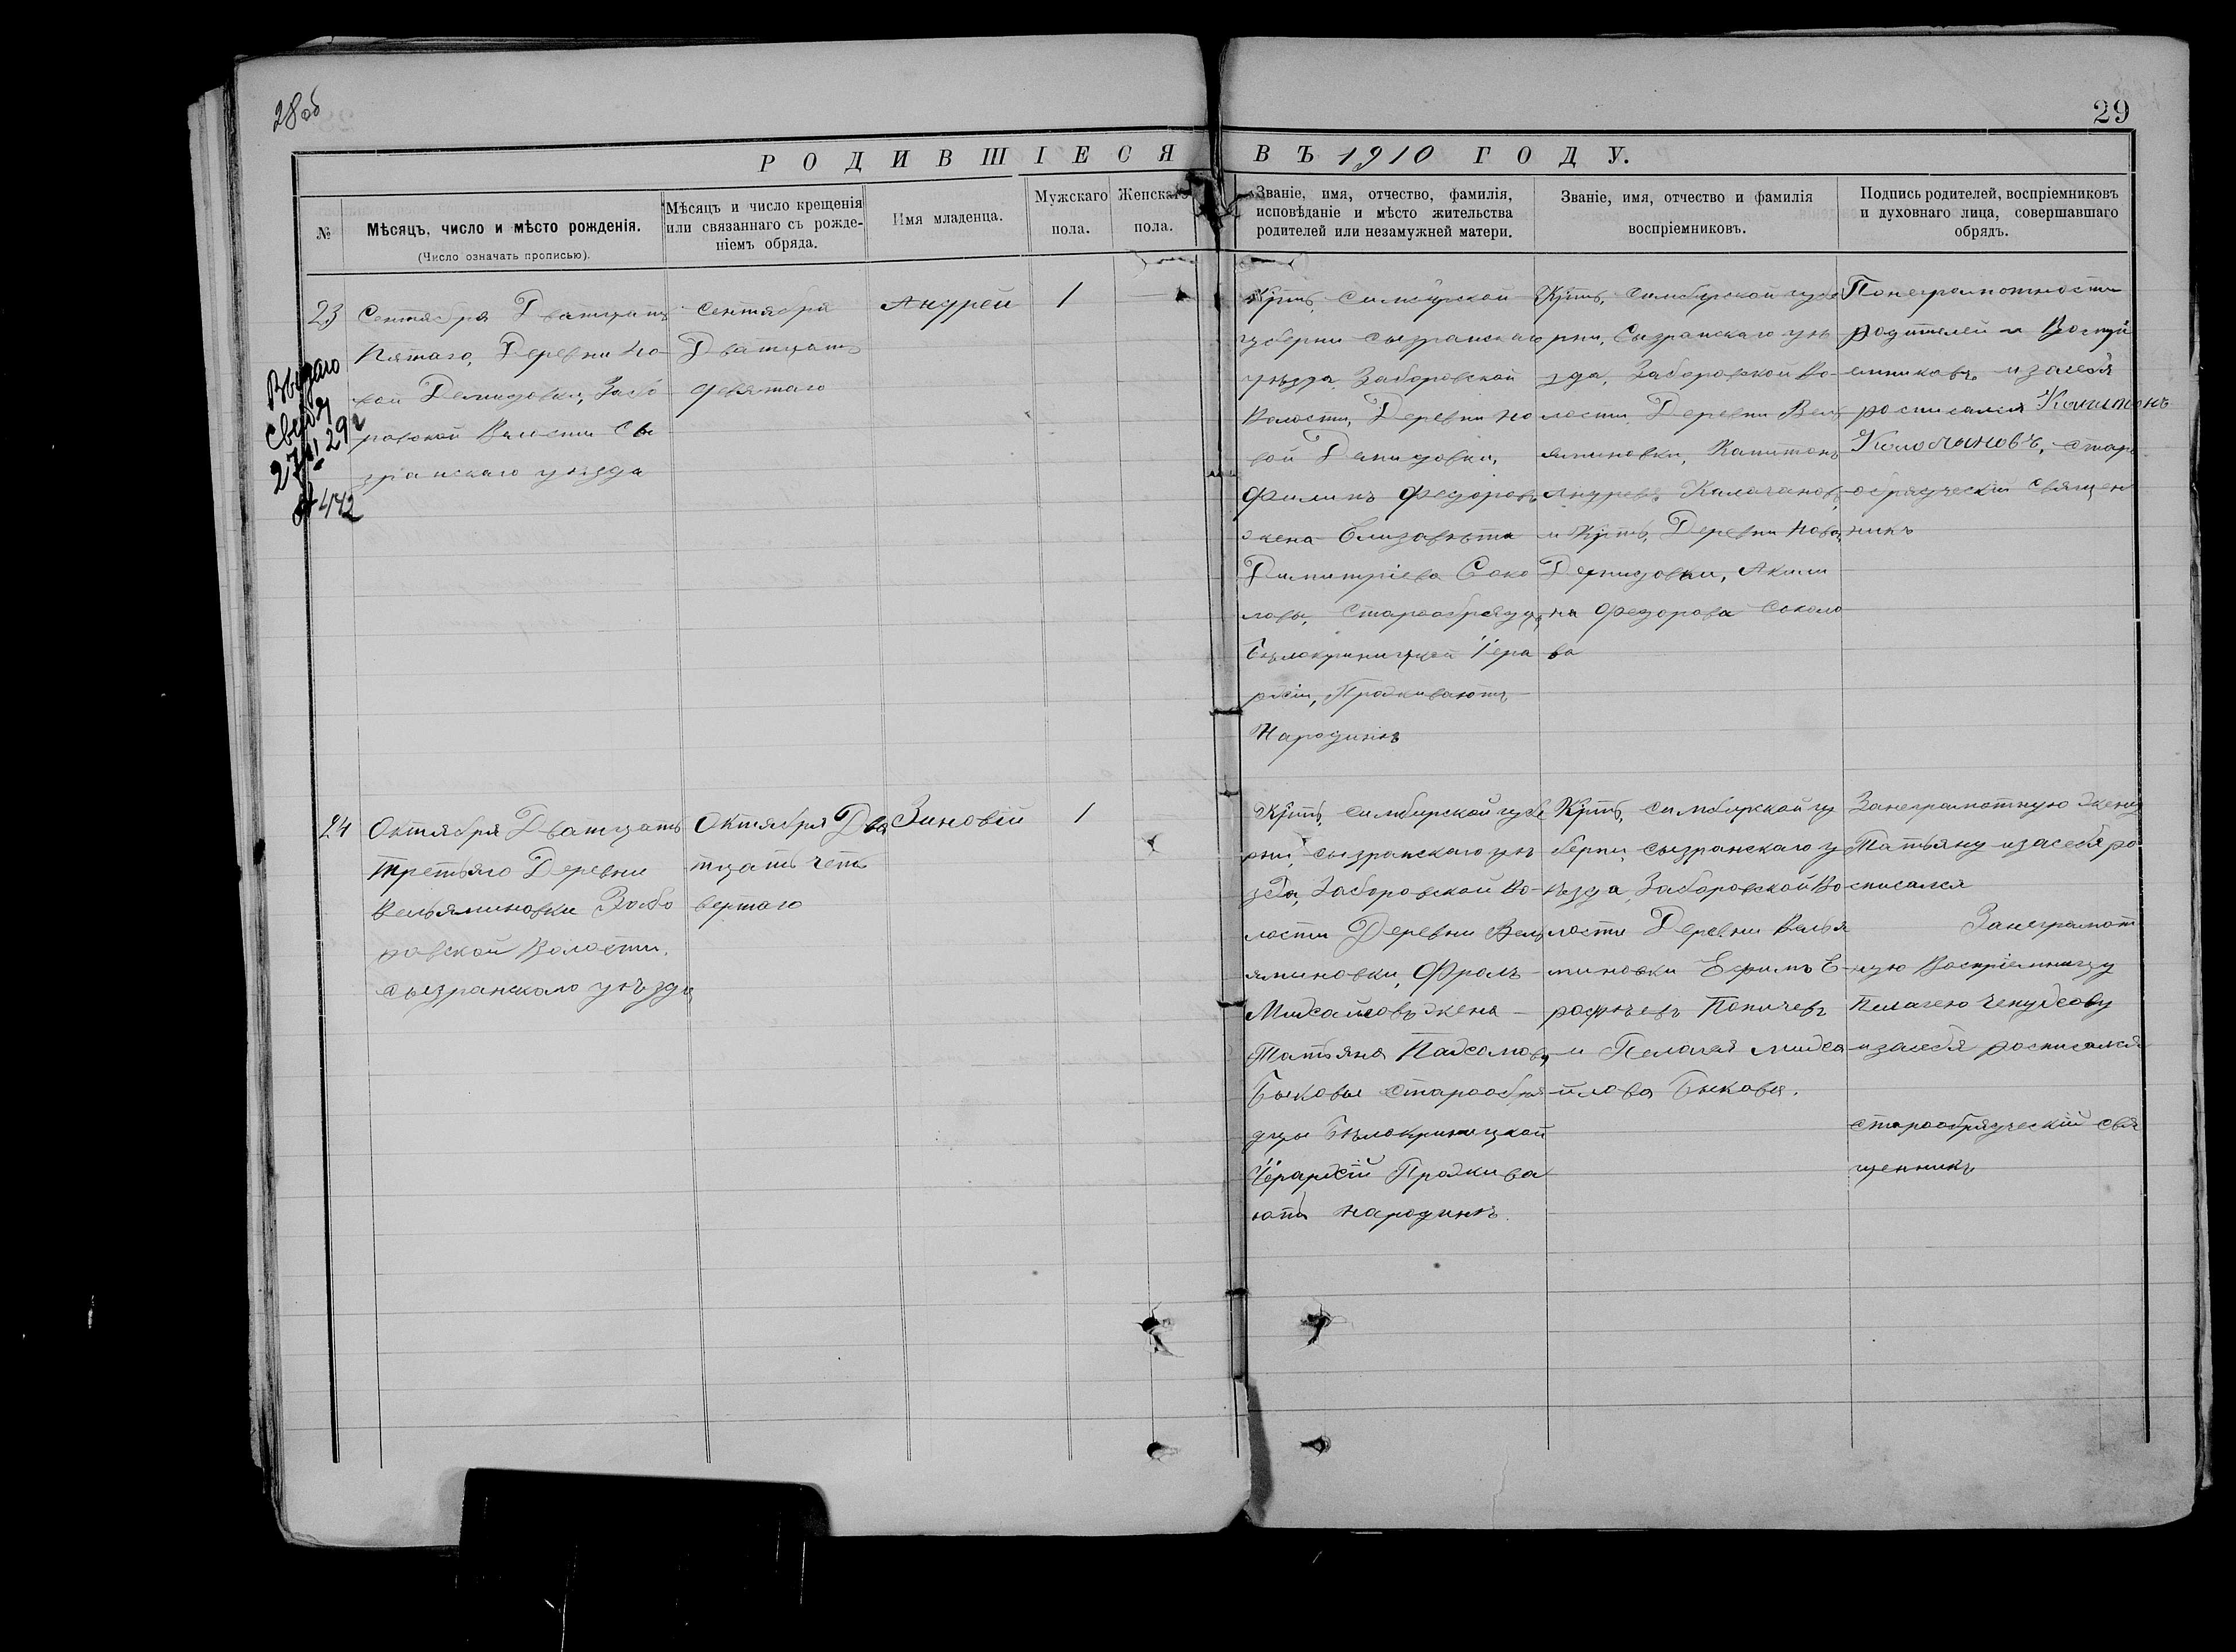 28 об
29
РОДИВШІЕСЯ ВЪ 1910 ГОДУ.
№
Мѣсяцъ, число и мѣсто рожденія.
(Число означать прописью).
Мѣсяцъ и число крещенія
или связаннаго съ рожде-
ніемъ обряда.
Имя младенца.
Мужскаго
пола.
Женскаго
пола.
Званіе, имя, отчество, фамилія,
исповѣданіе и мѣсто жительства
родителей или незамужней матери.
Званіе, имя, отчество и фамилія
воспріемниковъ.
Подпись родителей, воспріемниковъ
и духовнаго лица, совершавшаго
обрядъ.
23
Сентября Дватцать
Пятаго, Деревни Но-
вой Демидовки, Забо
ровской Волости Сы
зранскаго уѣзда
Сентября
Дватцать
девятаго
Андрей
1
Крть, Симбирской
губерни Сызранскаго
уѣзда Заборовской
Волости, Деревни Но
вой Демидовки,
Филипъ Федоровъ
жена Елизавѣта
Димитріева Соко
ловы, Старообрядцы
Бѣлокриницкой Іера
рхіи, Проживаютъ
Народинѣ
Крть, Симбирской губе
рни, Сызранскаго уѣ
зда, Заборовской Во-
лости, Деревни Вель
яминовки, Капитонъ
Андреевъ Калачановъ
и Крть, Деревни Новой
Демидовки, Акили
на Федорова Соколо
ва
Понеграмотности
родителей и Воспрі
емниковъ и засебя
росписался Капитонъ
Колочановъ, стар
обрядческій Священ
никъ
Выдано
свед
27/VI 29 г
№ 442
24
Октября Дватцать
третьяго Деревни
Вельяминовки Забо
ровской Волости,
Сызранскаго уѣзда
Октября Два
тцать чет
вертаго
Зиновій
1
Крть, Симбирской губе
рни, Сызранскаго уѣ
зда, Заборовской Во-
лости Деревни Вель
яминовки, Фролъ
Михайловъ жена
Татьяна Пахомова
Быковы Старообря
дцы Бѣлокриницкой
Іерархіи Прожива
ютъ Народинѣ.
Крть, Симбирской гу
берни, Сызранскаго у
ѣзда, Заборовской Во
лости Деревни Велья
миновки Ефимъ Е
рофѣевъ Попичевъ
и Пелагея Миха
йлова Быкова.
Занеграмотную жену
Татьяну и засебя ро
списался
Занеграмот
ную Воспріемницу
Пелагею
и засебя росписался
старообрядческій свя
щенникъ